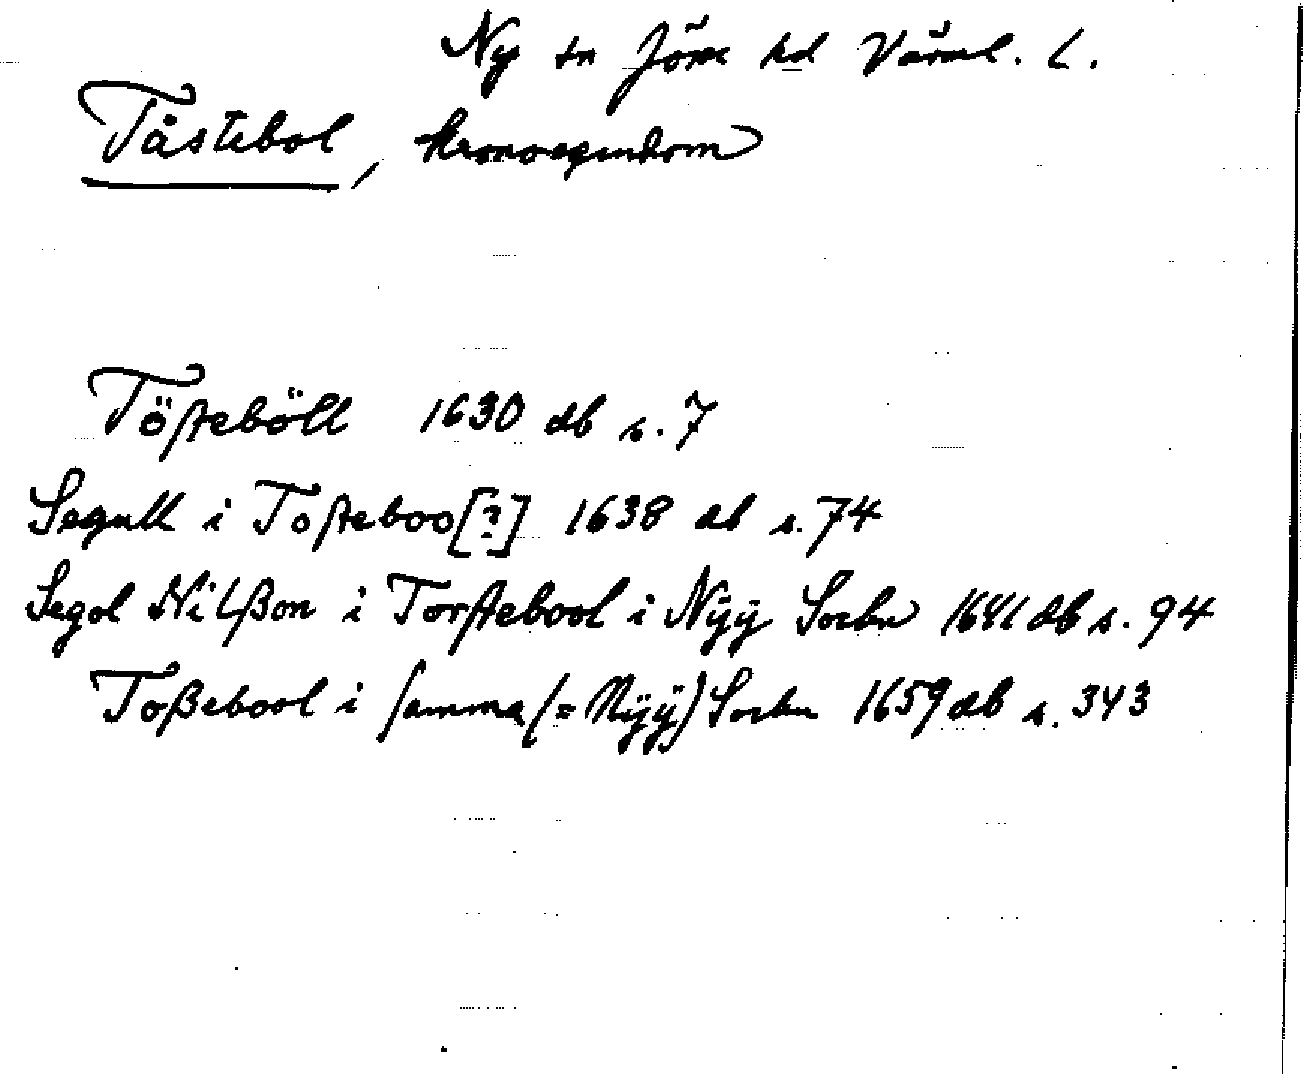 Ny sn Jöss hd Värml. L.
Tåstebol, kronoegendom
Töſteböll 1630 db s. 7
Segull i Toſteboo[?] 1638 db s. 74
Segol Nilßon i Torſtebool i Nÿÿ Sochn 1641 db s. 94
Toßebool i ſamma (= Nÿÿ) Sochn 1659 db s. 343